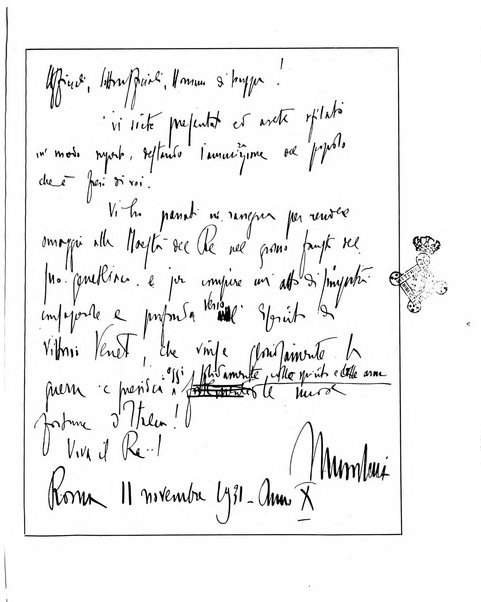 Ufficiali, Sottufficiali, Uomini di truppa!
Vi siete presentati ed avete sfilato
in modo superbo, destando l'ammirazione del popolo
che è fiero di voi.
Vi ho passati in rassegna per rendere
omaggio alla Maestà del Re nel giorno fausto del
suo genetliaco e per compiere un atto di simpatia
e profonda verso l'Esercito di
Vittorio Veneto, che vinse gloriosamente la
guerra e presidia oggi saldamente, nello spirito e nelle armi
le nuove
fortune d'Italia!
Viva il Re..!
Mussolini
Roma 11 novembre 1931 - Anno X